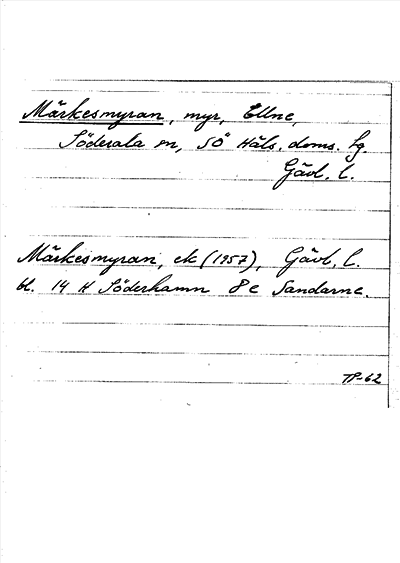 Märkesmyran, myr, Ellne,
Söderala sn, SÖ Häls. doms. fg.
Gävl. l.
Märkesmyran, ek (1957), Gävl. l.
bl. 14 H Söderhamn 8 e Sandarne.
TP-62